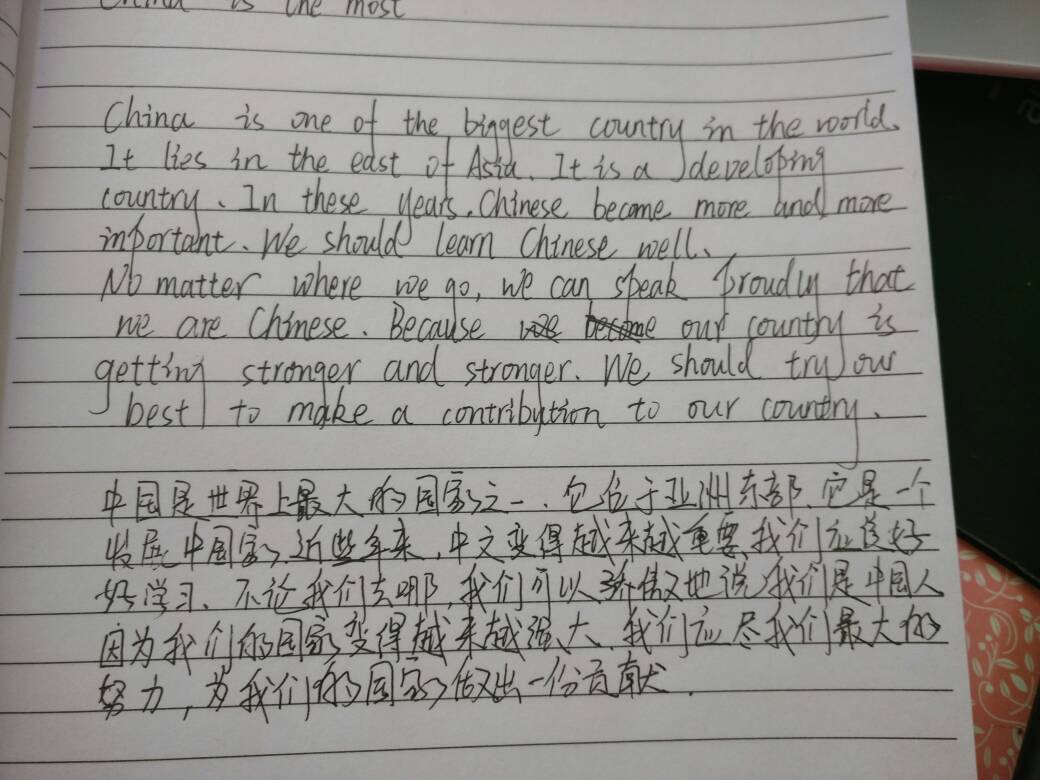 China is the most
China is one of the biggest country in the world.
It lies in the east of Asia. It is a developing
country. In these years. Chinese become more and more
important. We should learn Chinese well.
No matter where we go, we can speak proudly that
we are Chinese. Because our country is
getting stronger and stronger. We should try our
best to make a contribution to our country.
中国是世界上最大的国家之一.它位于亚洲东部.它是一个
发展中国家.近些年来.中文变得越来越重要.我们应该好
好学习.不论我们去哪,我们可以骄傲地说我们是中国人
因为我们的国家变得越来越强大.我们应尽我们最大的
努力,为我们的国家做出一份贡献.